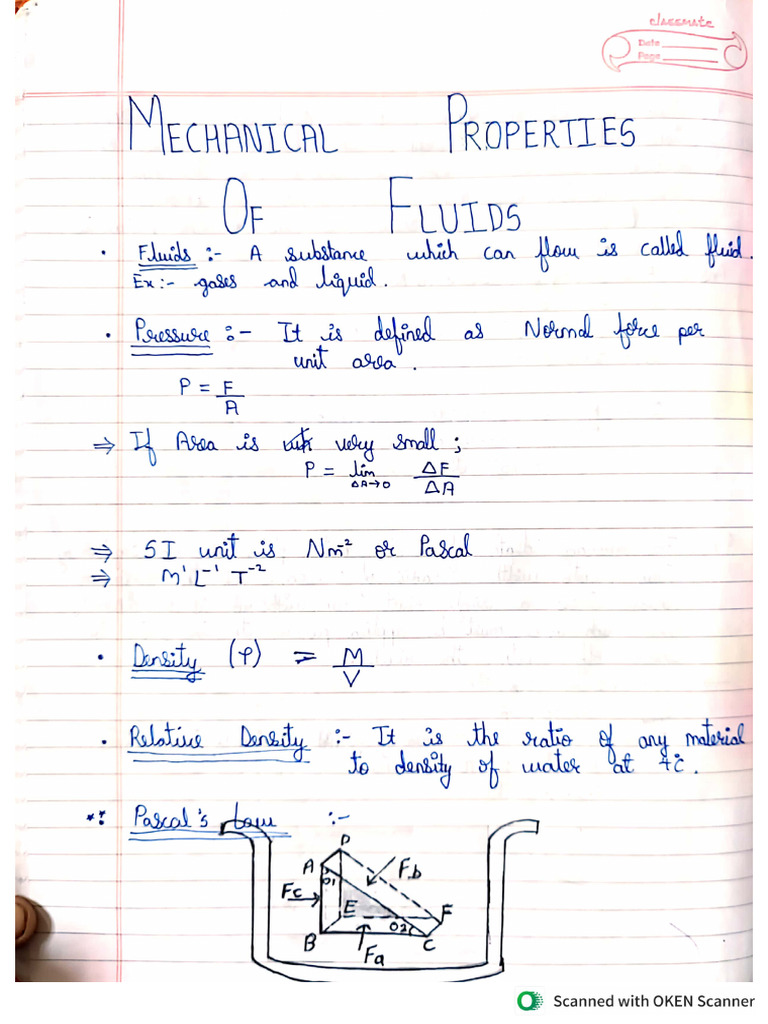 classmate
Date
Page
MECHANICAL PROPERTIES
OF FLUIDS
• Fluids :- A substance which can flow is called fluid.
Ex:- gases and liquid.
• Pressure :- It is defined as Normal force per
unit area.
P = F/A
⇒ If Area is very small ;
P = lim ΔA→0 ΔF/ΔA
⇒ SI unit is Nm⁻² or Pascal
⇒ M¹L⁻¹T⁻²
• Density (ρ) = M/V
• Relative Density :- It is the ratio of any material
to density of water at 4°C.
*: Pascal's Law :-
D
A
θ1
Fb
Fc
E
F
B
θ2
C
Fa
Scanned with OKEN Scanner